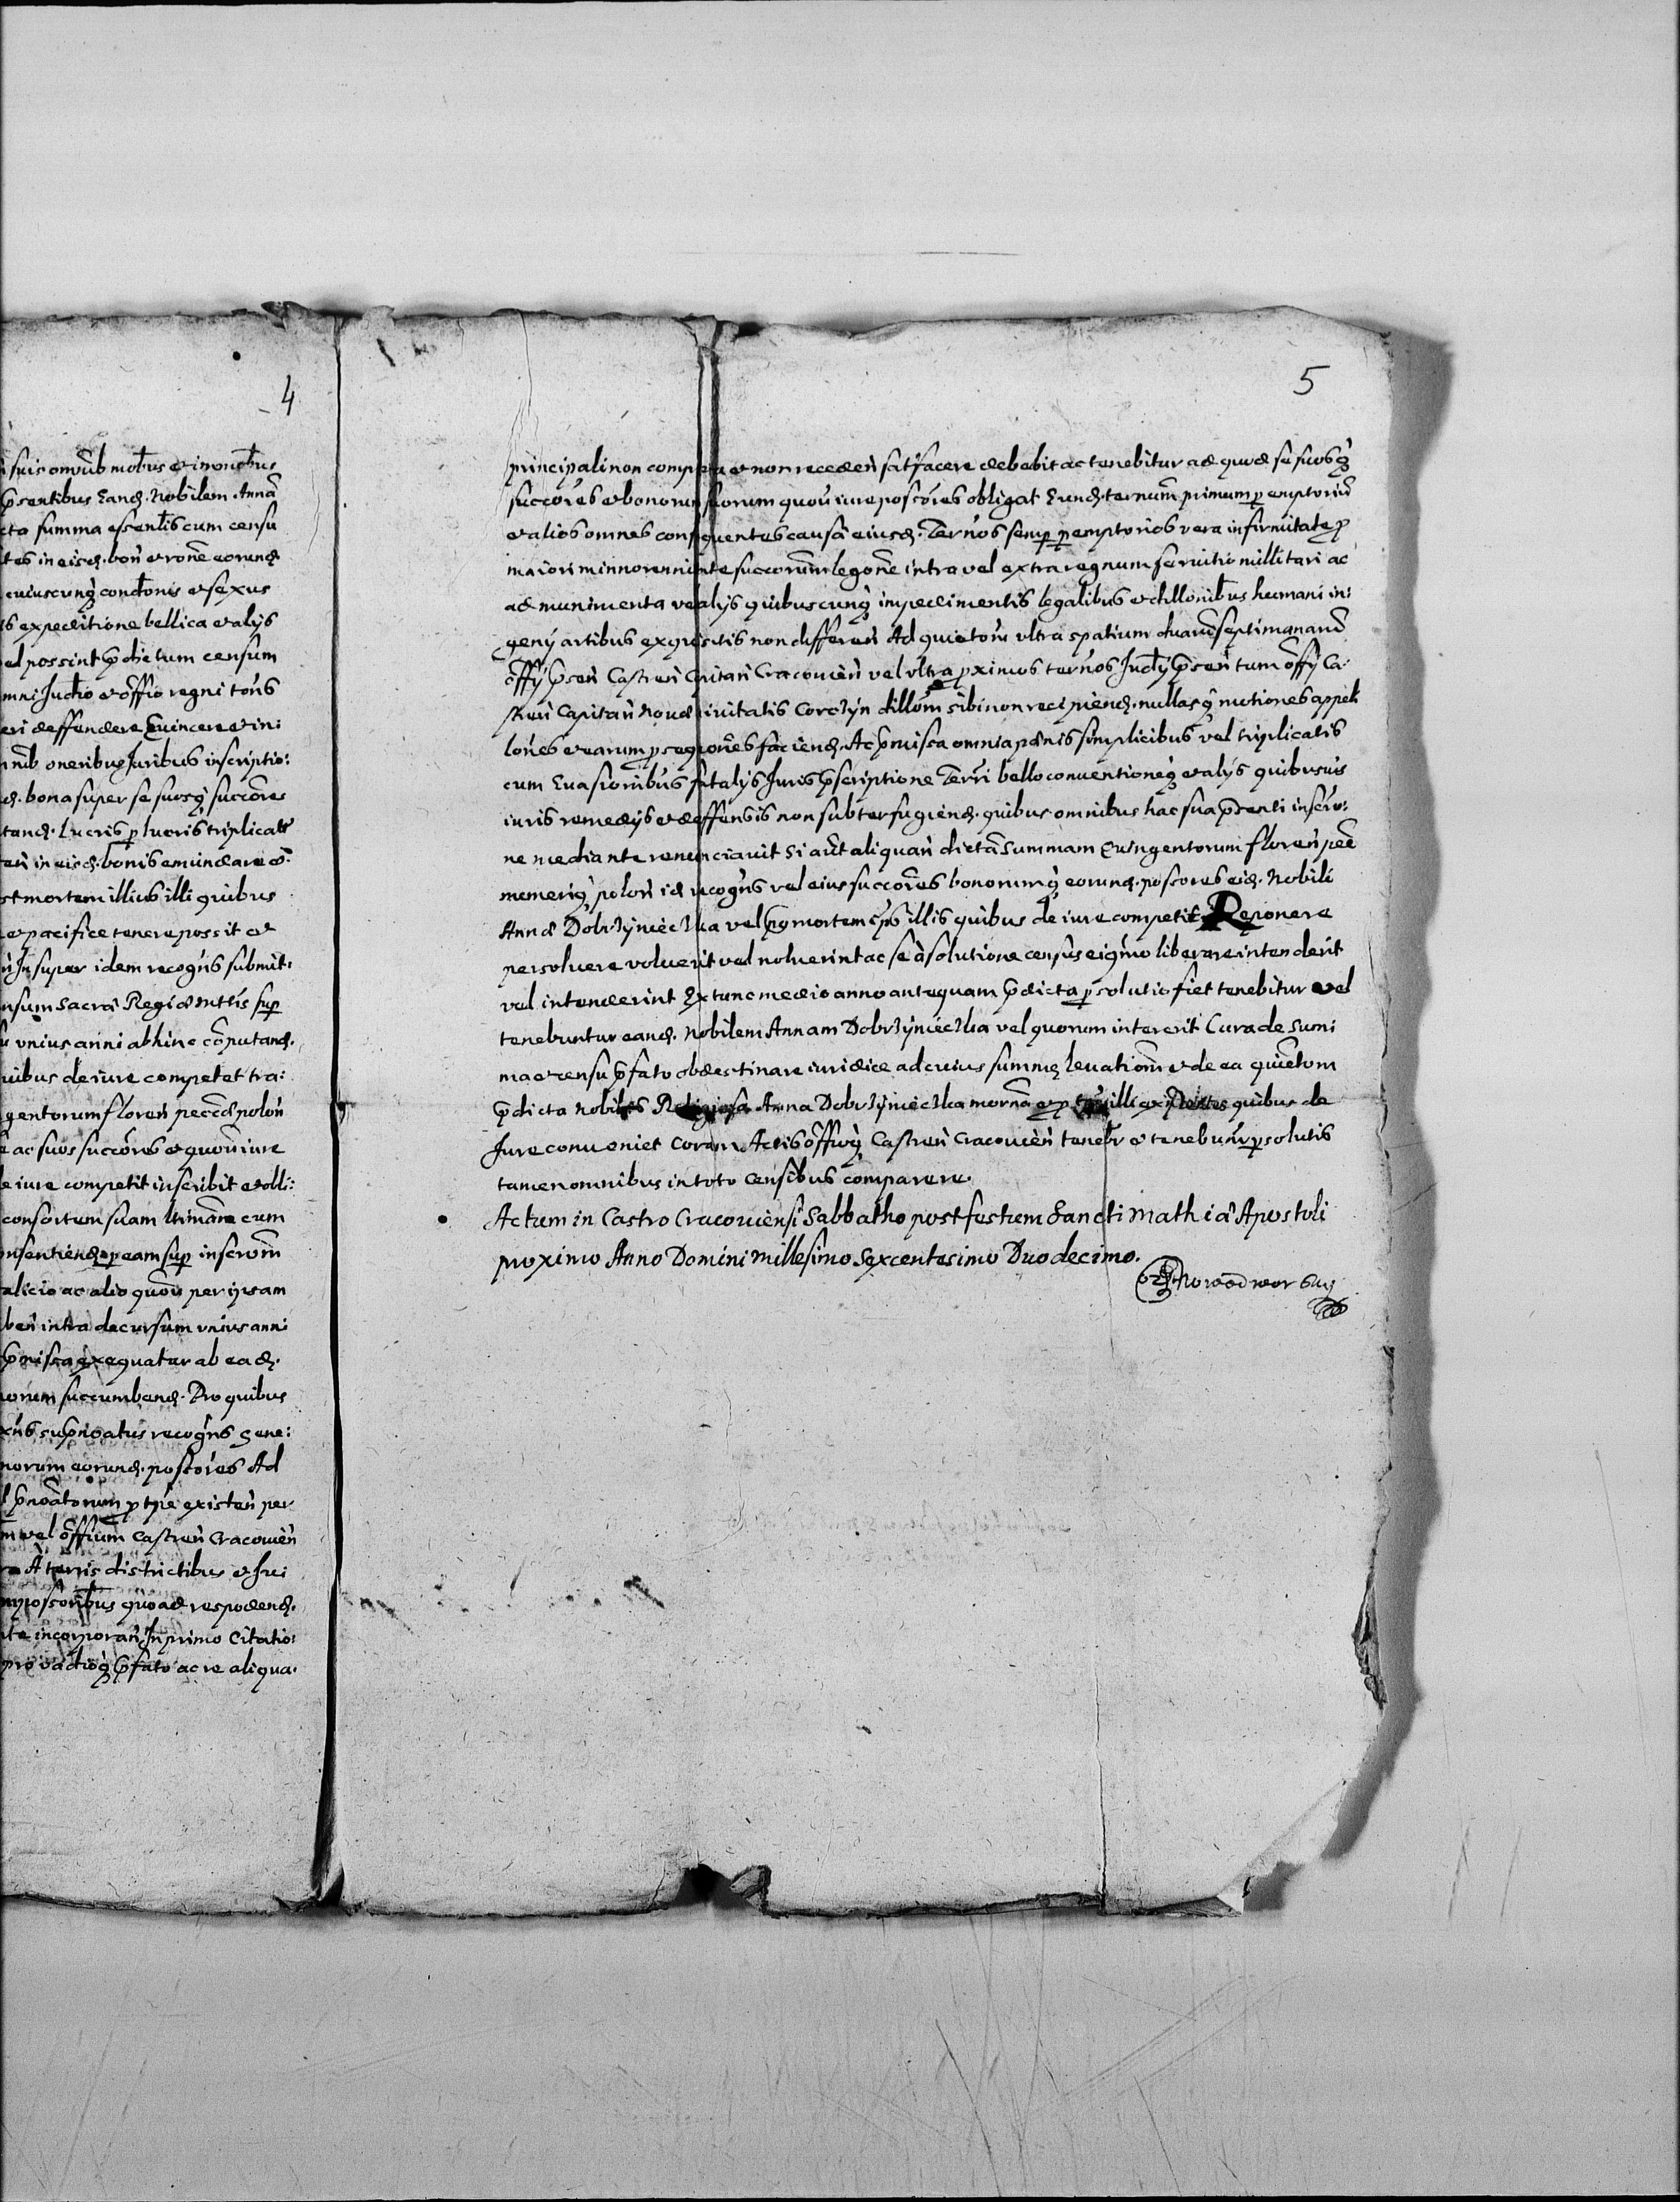 4
suis omnib mobus et imobus
pŝentibus Eand. Nobilem Annã
cta summa essentis cum censu
tes in eisd. boñ et rone eorund
cuiuscunq̃ condtonis et sexus
is expeditione bellica et alys
el possint p̃dictum censum
mni Judio et offio regni tons
eri deffendere Euincere et in:
nib oneribus Juribus inscriptio:
d. bona super se suosq̃ succores
tand. lucris p lucris triplicatt
eñ in eisd. bonis emundare
st mortem illius illi quibus
et pacifice tenere possit et
Insuper idem recogñs submit:
nsum Sacrã Regiã Mttis sup
unius anni abhinc cõputand.
uibus de iure competet tra:
gentorum floreñ pecc̃ polon
ac suos succores et quovi iure
e iure competit inscribit et obli:
consortem suam ltimãm cum
nsentiend per eam sup inscrom
alicio ac alio quovi per ipsam
beñ intra decursum unius anni
p̃missa exequatur ab ead.
orum succumbend. Pro quibus
xñs sup̃noatus recogñs gene:
norum eorund. possores Ad
p̃noãtorum p tpe existeñ per
m vel õffium Castreñ Cracovieñ
A terris districtibus et Jri
mpossoribus quoad respodend.
te incorporañ In primo Citatio:
pro vadioq̃ p̃fato ac re aliqua.
5
principali non compta et non receden satfacere debebit ac tenebitur ad quod se suosq̃
succores et bonorum suorum quovi iure possores obligat Eund. ternum primum p emptorium
et alios omnes consequentes causã eiusd. Terños semp pemptorios vera infirmitate p
maiori minnorennitate succorum legone intra vel extra regnum servitio millitari ac
ad munimenta vel alys quibuscunq̃ impedimentis legalibus et dillonibus humani in:
geny artibus exquisitis non differen Ad quietom ultra spatium duarum septimanarum
õffy p̃señ Castreñ Capitañ Cracovieñ vel ultra pximos terños Judy p̃señ tum õffy Ca:
streñ Capitañ Novae Civitatis Corczyn dillom sibi non recipiend. nullasq̃ motiones appel:
lones et earum psequiones faciend. Ac p̃missa omnia paenis simplicibus vel triplicatis
cum Evasionibus fatalys Juris p̃scriptione Terri bello conventioneq̃ et alys quibusvis
iuris remedys et deffensis non subterfugiend. quibus omnibus hac sua p̃senti inscro:
ne mediante renunciavit Si aut aliquañ dictã Summam Quingentorum floreñ pec̃
numeriq̃ poloñ id recogñs vel eius succores bonorumq̃ eorund. possores eid. Nobili
Annæ Dobrzyniecka vel post mortem ips illis quibus de iure competit Reponere
persolvere voluerit vel noluerint ac se à solutione census eigmo liberare intenderit
vel intenderint Ex tunc medio anno antequam p̃dicta psolutio fiet tenebitur vel
tenebuntur eand. Nobilem Annam Dobrzyniecka vel quorum intererit Cura de Sum:
ma et censu p̃fato obdestinare iuridice ad cuius summæ levationem et de ea quietom
p̃dicta Nobilis Religiosa Anna Dobrzyniecka illi existentes quibus de
Jure conveniet Coram Actis õffyq̃ Castreñ Cracovieñ tenebr et tenebuñr psolutis
tamen omnibus in toto Censibus comparere.
Actum in Castro Cracoviensi Sabbatho post festum Sancti Mathiæ Apostoli
proximo Anno Domini Millesimo Sexcentesimo Duodecimo.